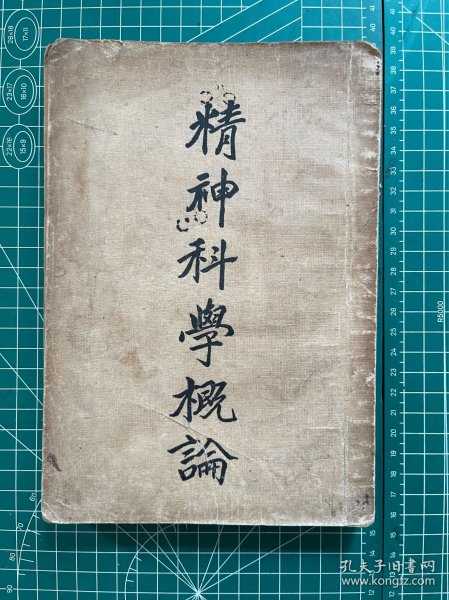 精神科學概論
孔夫子旧书网
www.kongfz.com